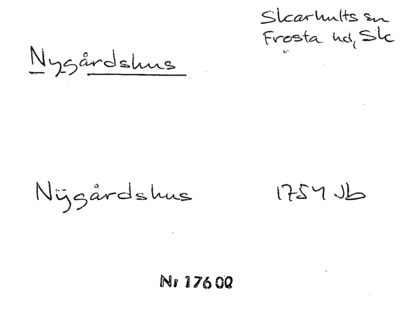 Skarhults sn
Frosta hd, Sk
Nygårdshus
Nÿgårdshus 1754 Jb
Nr 17600